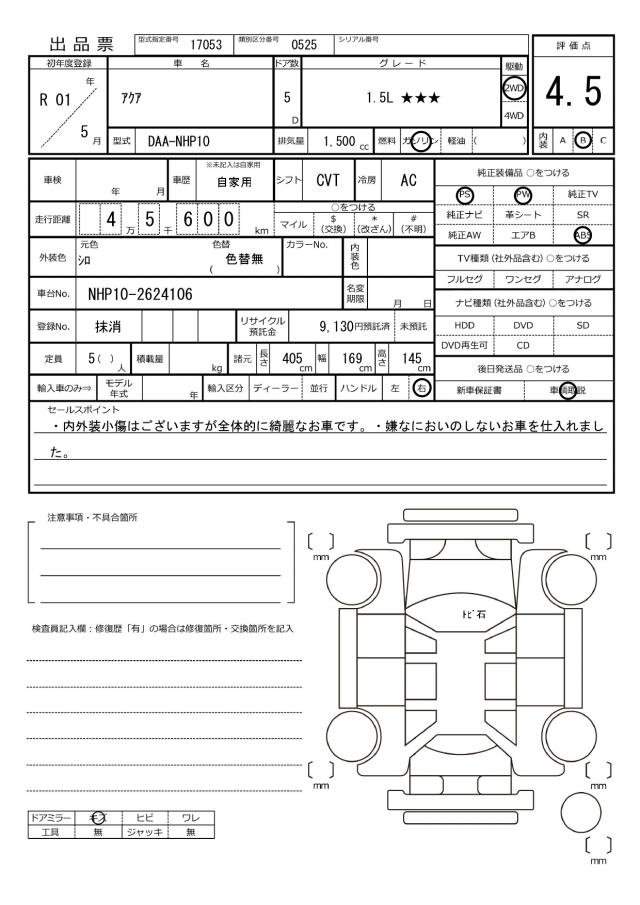 出品票 型式指定番号 17053 類別区分番号 0525 シリアル番号
評価点
4.5
内装 A B C
初年度登録 車名 ドア数 グレード 駆動
R 01 年 5 月
ｱｸｱ 5 D 1.5L ★★★ 2WD 4WD
型式 DAA-NHP10 排気量 1,500 cc 燃料 ガソリン 軽油 ( )
車検 年 月 車歴 ※未記入は自家用 自家用 シフト CVT 冷房 AC
走行距離 4 万 5 千 6 0 0 km
○をつける
マイル $ (交換) * (改ざん) # (不明)
外装色 元色 ｼﾛ 色替 ( 色替無 ) カラーNo. 内装色
車台No. NHP10-2624106 名変期限 月 日
登録No. 抹消 リサイクル預託金 9,130円預託済 未預託
定員 5 ( ) 人 積載量 kg 諸元 長さ 405 cm 幅 169 cm 高さ 145 cm
輸入車のみ⇒ モデル年式 年 輸入区分 ディーラー 並行 ハンドル 左 右
純正装備品 ○をつける
PS PW 純正TV
純正ナビ 革シート SR
純正AW エアB ABS
TV種類 (社外品含む) ○をつける
フルセグ ワンセグ アナログ
ナビ種類 (社外品含む) ○をつける
HDD DVD SD
DVD再生可 CD
後日発送品 ○をつける
新車保証書 車輌取説
セールスポイント
・内外装小傷はございますが全体的に綺麗なお車です。・嫌なにおいのしないお車を仕入れまし
た。
注意事項・不具合箇所
検査員記入欄：修復歴「有」の場合は修復箇所・交換箇所を記入
ドアミラー キズ ヒビ ワレ
工具 無 ジャッキ 無
〔 〕 mm 〔 〕 mm
ﾄﾋﾞ石
〔 〕 mm 〔 〕 mm
〔 〕 mm